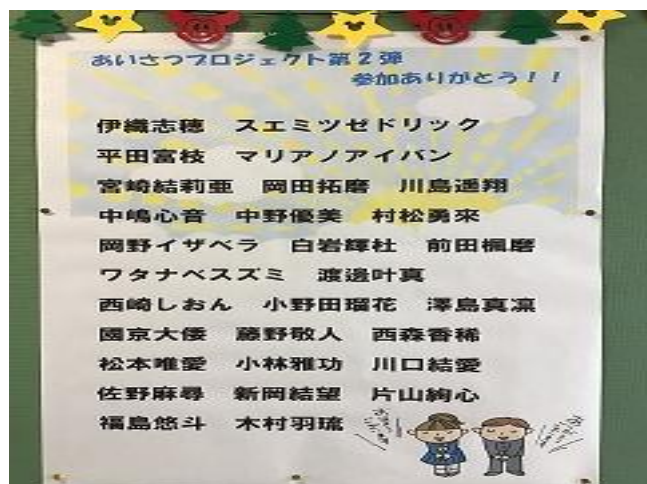 あいさつプロジェクト第2弾
参加ありがとう！！
伊織志穂　スエミツゼドリック
平田富枝　マリアノアイバン
宮崎結莉亜　岡田拓磨　川島遥翔
中嶋心音　中野優美　村松勇來
岡野イザベラ　白岩輝杜　前田楓磨
ワタナベスズミ　渡邉叶真
西崎しおん　小野田瑠花　澤島真凜
國京大倭　藤野敬人　西森香稀
松本唯愛　小林雅功　川口結愛
佐野麻尋　新岡結望　片山絢心
福島悠斗　木村羽琉